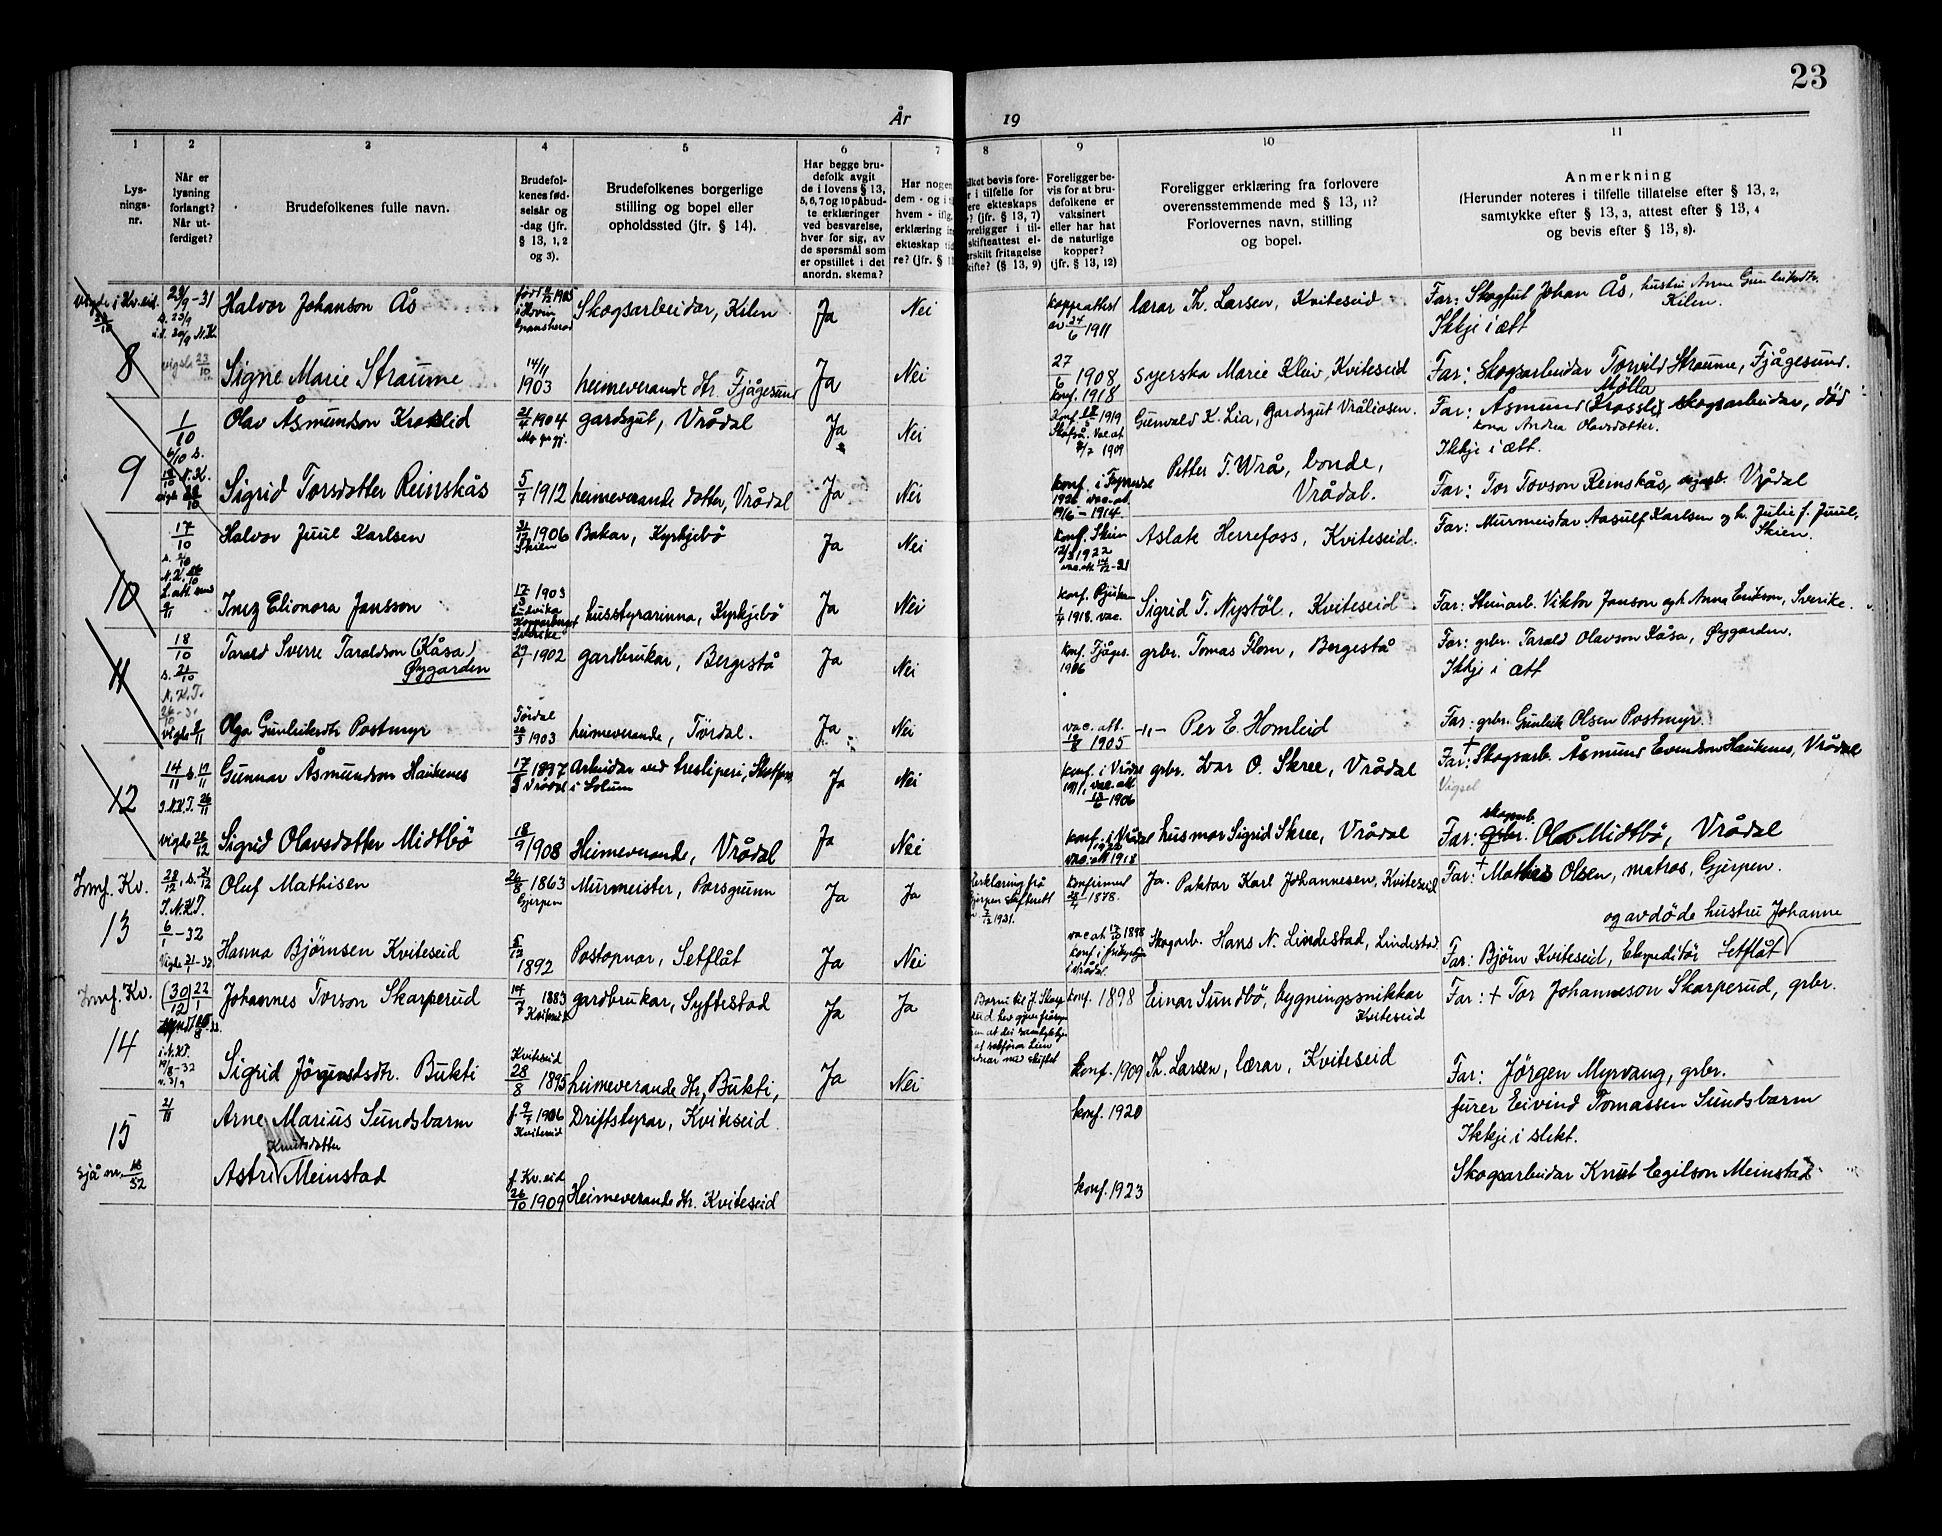 23
År 19
1
Lys-
nings-
nr.
2
Når er
lysning
forlangt?
Når ut-
ferdiget?
3
Brudefolkenes fulle navn.
4
Brudefol-
kenes fød-
selsår og
-dag (jfr.
§ 13, 1, 2
og 3).
5
Brudefolkenes borgerlige
stilling og bopel eller
opholdssted (jfr. § 14).
6
Har begge bru-
defolk avgit
de i lovens § 13,
5, 6, 7 og 10 påbud-
te erklæringer
ved besvarelse,
hver for sig, av
de spørsmål som
er opstillet i det
anordn. skema?
7
Har nogen
dem - og i
hvem - ifg.
erklæring
ekteskap
re? (jfr. §
8
ilket bevis fore-
r i tilfelle for
ere ekteskaps
? (jfr. § 13, 7)
oreligger i til-
skifteattest el-
erskilt fritagelse
kifte? (§ 13, 9)
9
Foreligger be-
vis for at bru-
defolkene er
vaksinert
eller har hat
de naturlige
kopper?
(jfr. § 13, 12)
10
Foreligger erklæring fra forlovere
overensstemmende med § 13, 11?
Forlovernes navn, stilling
og bopel.
11
Anmerkning
(Herunder noteres i tilfelle tillatelse efter § 13, 2,
samtykke efter § 13, 3, attest efter § 13, 4
og bevis efter § 13, 8).
8
23/9-31
Halvor Johanson Ås
Skogsarbeidar, Kilen
Ja
Nei
koppeattest
av 24/6 1911
lærar Th. Larsen, Kviteseid
Far: Skogfut Johan Ås, hustru Anne Gunleiksdtr.
Kilen.
Ikkje i ætt
vigsle 23/10
Signe Marie Straume
14/11
1903
heimeverande dtr. Fjågesund
Ja
Nei
27/6 1908
konf. 1918
syerska Marie Kleiv, Kviteseid
Far: Skogsarbeidar Torvild Straume, Fjågesund.
9
1/10
Olav Åsmundson Krosslid
21/4 1904
gardsgut, Vrådal
Ja
Nei
1919
1909
Gunvald K. Lia, Gardsgut Vråliosen.
Molla
Far: Åsmund (Krosslid) skogsarbeidar, død
kona Andrea Olavsdotter.
Ikkje i ætt.
Sigrid Torsdatter Reinskås
5/7 1912
heimeverande dotter, Vrådal
Ja
Nei
19/6 - 1914.
Petter T. Wrå, bonde,
Vrådal.
Far: Tor Tovson Reinskås, Vrådal
10
17/10
Halvor Juul Karlsen
1906
Skien
Bakar, Kyrkjebø
Ja
Nei
Konf. Skien
1922
Aslak Herrefoss, Kviteseid.
Far: Murmeistar Aasulf Karlsen og h. Julie f. Juul,
Skien.
Inez Elionora Jansson
17/3 1903
Ludvika
Kopparberget
Sverike
husstyrarinna, Kyrkjebø
Ja
Nei
konf. Rjukan
1918. vac.
Sigrid T. Nystöl, Kviteseid
Far: Stenarb. Viktor Janson og h. Anna Erikson, Sverike.
11
18/10
s. 21/10
Tarald Sverre Taraldson (Kåsa)
Øygarden
29/1 1902
gardbrukar, Bergestå
Ja
Nei
konf. Fjåges.
1906
grbr. Tomas Flom, Bergestå
Far: grbr. Tarald Olavson Kåsa, Øygarden.
Ikkje i ætt
Olga Gunleiksdtr Postmyr
Tørdal
1903
heimeverande, Tørdal.
Ja
Nei
vac. att.
1905
-"- Per E. Homleid
Far: grbr. Gunleik Olsen Postmyr
12
Gunnar Åsmundson Haukenes
17/3 1897
Vrådal
Arbeidar ved tresliperi, Skotfoss
i Solum
Ja
Nei
konf. i Vrådal
1911, vac. att.
1906
grbr. Ivar O. Skree, Vrådal
Far: † Skogsarb. Åsmund Evendson Haukenes, Vrådal
Vigsel
Sigrid Olavsdatter Midtbö
18/9 1908
Heimeverande, Vrådal
Ja
Nei
konf. i Vrådal
vac. att 1918
husmor Sigrid Skree, Vrådal
skogarb.
Far: grbr. Olav Midtbö, Vrådal
Innf. Kv.
13
Oluf Mathisen
26/8 1863
Gjerpen
Murmeister, Porsgrunn
Ja
Ja
Erklæring frå
Gjerpen skifterett
1931.
konfirmert
28/4 1878.
Ja. Paktar Karl Johannesen, Kviteseid
Far: † Mathias Olsen, matros, Gjerpen.
og avdøde hustru Johanne
6/1-32
Hanna Bjørnsen Kviteseid
1892
Postopnar, Setflåt
Ja
Nei
1898
Skogarb. Hans N. Lindestad, Lindestad.
Far: Bjørn Kviteseid, Ekspeditör Setflåt
Innf. Kv.
14
(30/12) 22/1
Johannes Torson Skarperud
14/7 1883
Kviteseid
gardbrukar, Syftestad
Ja
Ja
konf. 1898
Einar Sundbö, bygningssnikkar
Kviteseid
Far: † Tor Johanneson Skarperud, grbr.
Sigrid Jörgensdtr. Bukti
Kviteseid
28/8 1895
heimeverande dtr, Bukti,
Ja
Nei
konf. 1909
Th. Larsen, lærar, Kviteseid
Far: Jörgen Myrvang, grbr.
15
21/11
Arne Marius Sundsbarm
f. 9/7 1906
Kviteseid
Driftstyrar, Kviteseid.
konf. 1920
furer Eivind Tomassen Sundsbarm
Ikkje i slekt.
Sjå nr. 18/32
Knutsdatter
Astri Meinstad
f. Kv.eid
26/10 1909
Heimeverande dtr. Kviteseid
konf. 1923
Skogsarbeidar Knut Egilson Meinstad